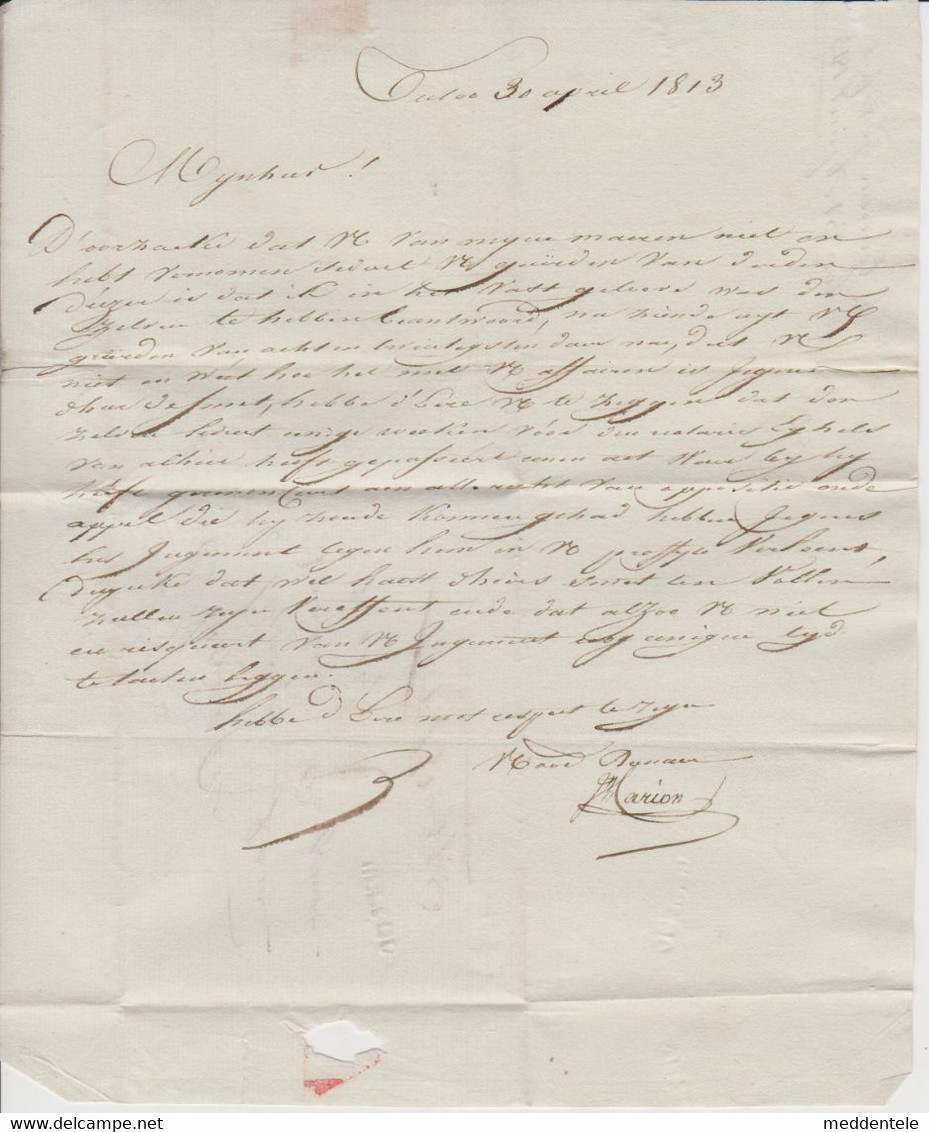 30 april 1813
Mynheer!
D'oorzacke dat UE van myne maeren niet en
hebt vernomen sedert UE geëerden van derden
dezer is dat ik in het vast geloove was den
zelven te hebben beantwoord, na ziende uyt UE
geërden van acht en twintigsten daer nae, dat UE
niet en weet hoe het met UE affairen is jegens
d'heer Desmet, hebbe d'Eere UE te zeggen dat den
zelven sedert eenige weeken vóór den notaris
van alhier heeft gepasseert eenen act waer by hy
heeft gerenonceert aen alle recht van oppositie ende
appel die hy zoude konnen gehad hebben jegens
het jugement tegen hem in UE proffyte verleent,
dat wel haest d'heer Smet ten vollen
zullen zyn vereffent ende dat alzoo UE niet
en risqueert van UE jugement nog eenigen tyd
te laeten liggen.
hebbe d'Eere met respect te zyn
UE ood. Dienaer
Marion
meddentele